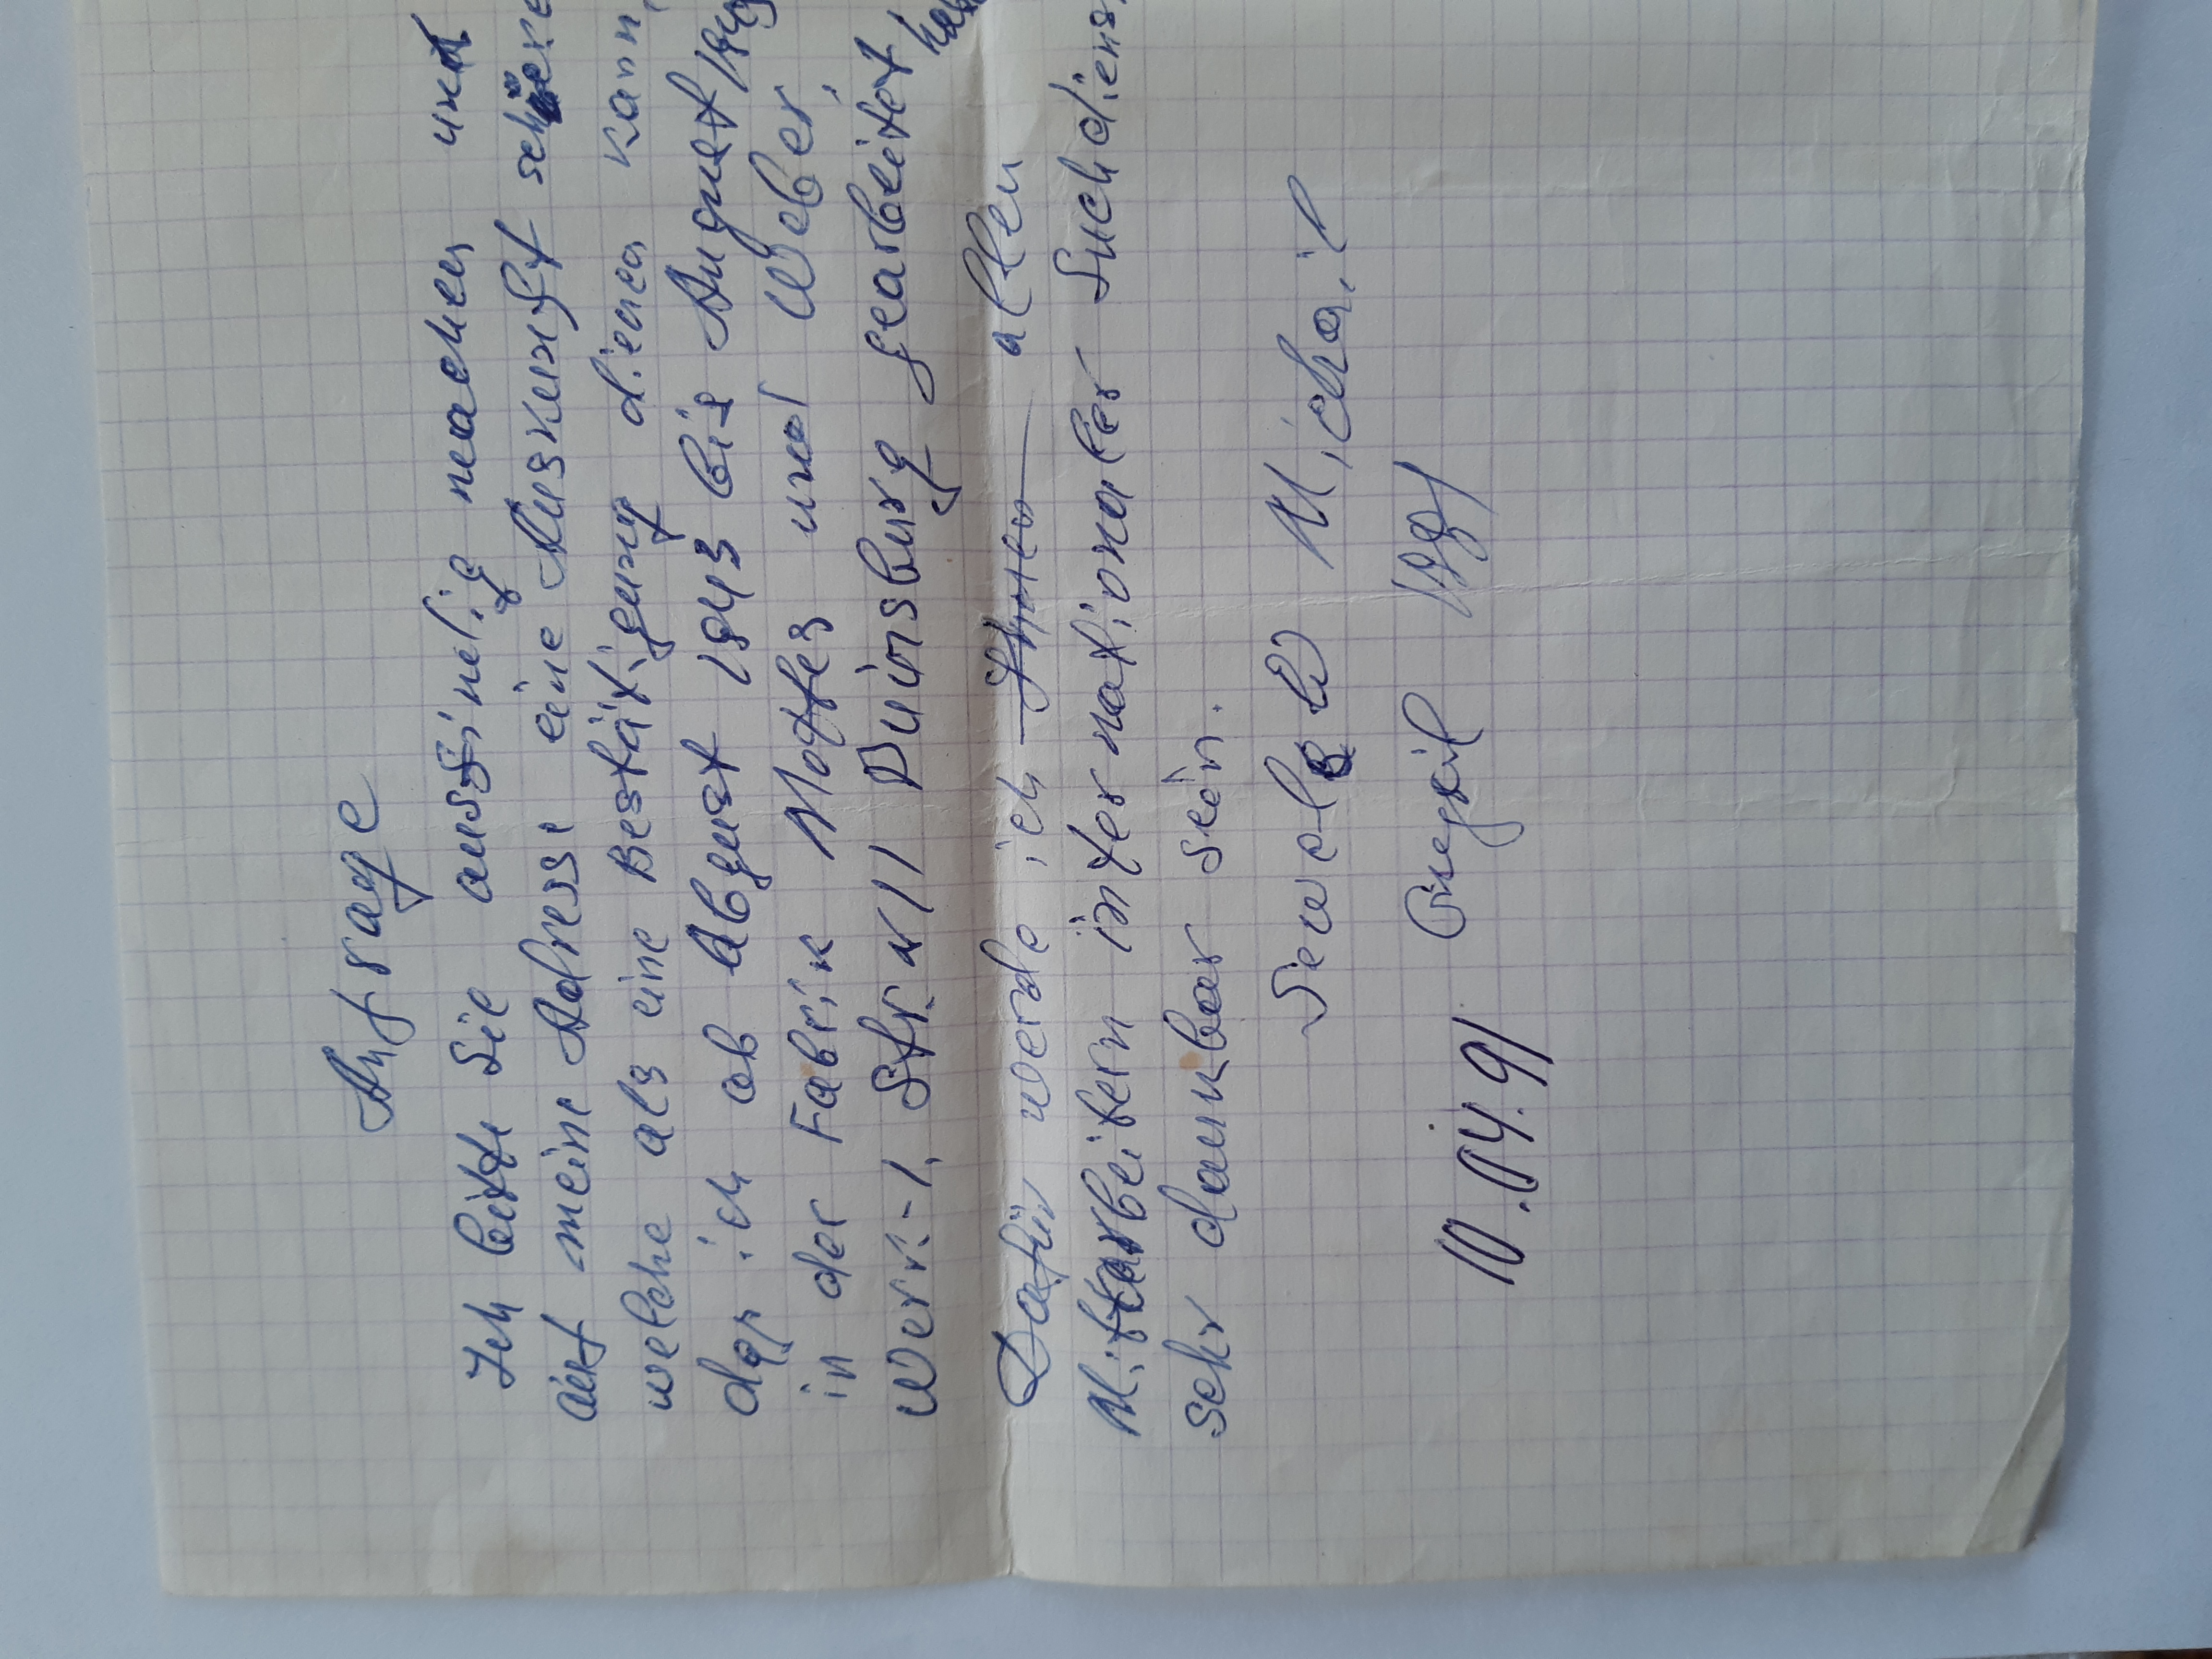 Anfrage
Ich bitte Sie ausfindig machen und
auf meine Adresse eine Auskunft
welche als eine Bestätigung dienen kann,
das ich ab Abgust 1943 bis August
in der Fabrik und Weber,
Werk-1, Str. 11 Duinsburg gearbeitet
Dafür werde ich Ihnen allen
Mittarbeitern internationaler Suchdiens
sehr dankbar sein.
Sewolow Michail
10.04.91 1991